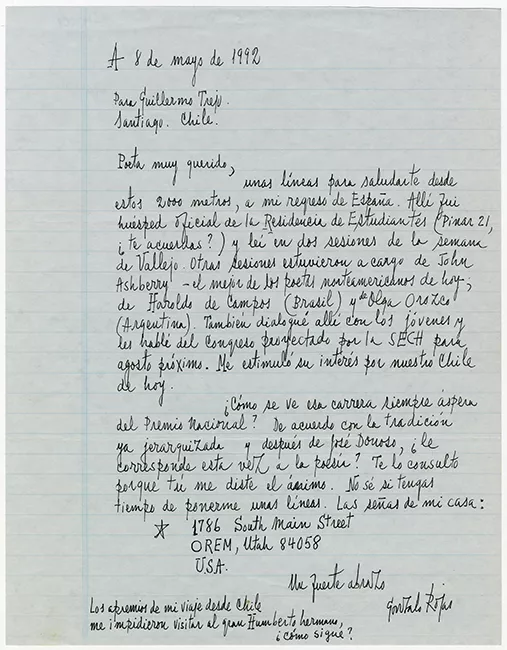 A 8 de mayo de 1992
Para Guillermo Trejo.
Santiago. Chile.
Poeta muy querido,
unas líneas para saludarte desde
estos 2000 metros, a mi regreso de España. Allí fui
huésped oficial de la Residencia de Estudiantes (Pinar 21,
¿te acuerdas?) y leí en dos sesiones de la semana
de Vallejo. Otras sesiones estuvieron a cargo de John
Ashberry -el mejor de los poetas norteamericanos de hoy-;
de Haroldo de Campos (Brasil) y de Olga Orozco
(Argentina). También dialogué allí con los jóvenes y
les hablé del Congreso proyectado por la SECH para
agosto próximo. Me estimuló su interés por nuestro Chile
de hoy.
¿Cómo se ve esa carrera siempre áspera
del Premio Nacional? De acuerdo con la tradición
ya jerarquizada y después de José Donoso, ¿le
corresponde esta vez a la poesía? Te lo consulto
porque tú me diste el ánimo. No sé si tengas
tiempo de ponerme unas líneas. Las señas de mi casa:
☆ 1786 South Main Street
OREM, Utah 84058
U.S.A.
Un fuerte abrazo
Gonzalo Rojas
Los apremios de mi viaje desde Chile
me impidieron visitar al gran Humberto hermano,
¿cómo sigue?